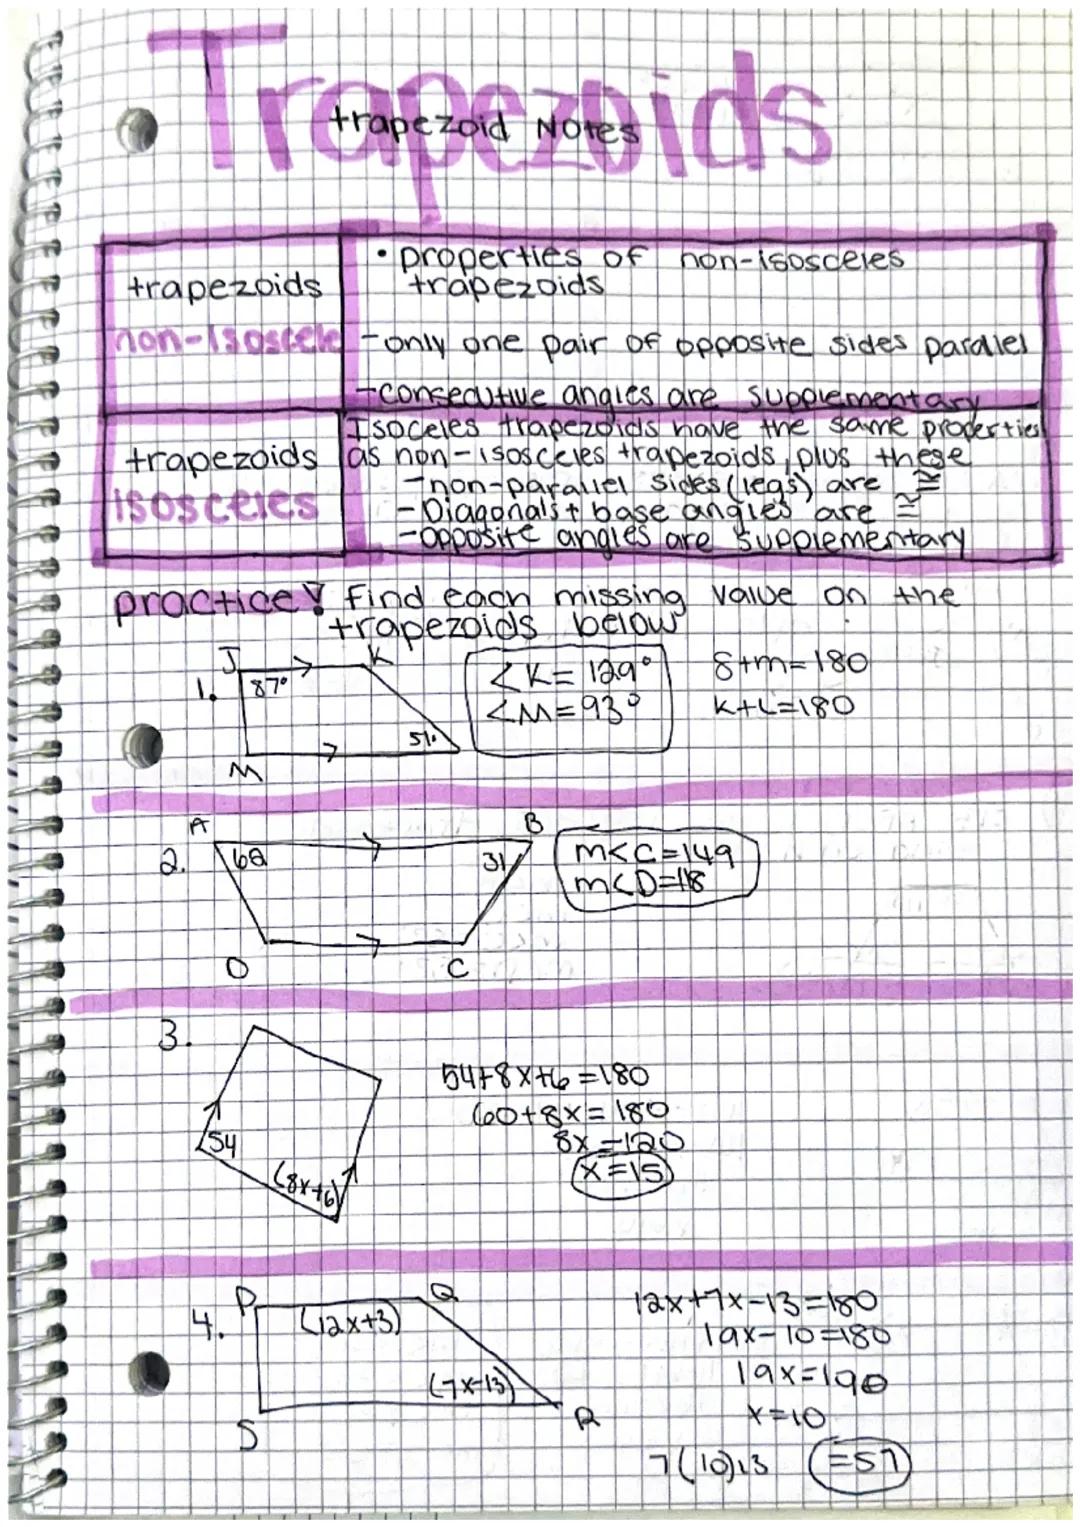 Trapezoids
trapezoid Notes
trapezoids
non-isoscele
• properties of non-isosceles
trapezoids
-only one pair of opposite sides parallel
-consecutive angles are supplementary
trapezoids
isosceles
Isoceles trapezoids have the same properties
as non-isosceles trapezoids, plus these
-non-parallel sides (legs) are ≅
-Diagonals + base angles are ≅
-opposite angles are supplementary
practice! Find each missing value on the
trapezoids below
1.
J
K
87°
51°
M
<K= 129°
<M=93°
8+m=180
K+L=180
2.
A
B
62
31
D
C
m<C=149
m<D=118
3.
54
(8x+6)
54+8x+6=180
60+8x=180
8x=120
x=15
4.
P
Q
(12x+3)
(7x-13)
S
R
12x+7x-13=180
19x-10=180
19x=190
x=10
7(10)13 =57